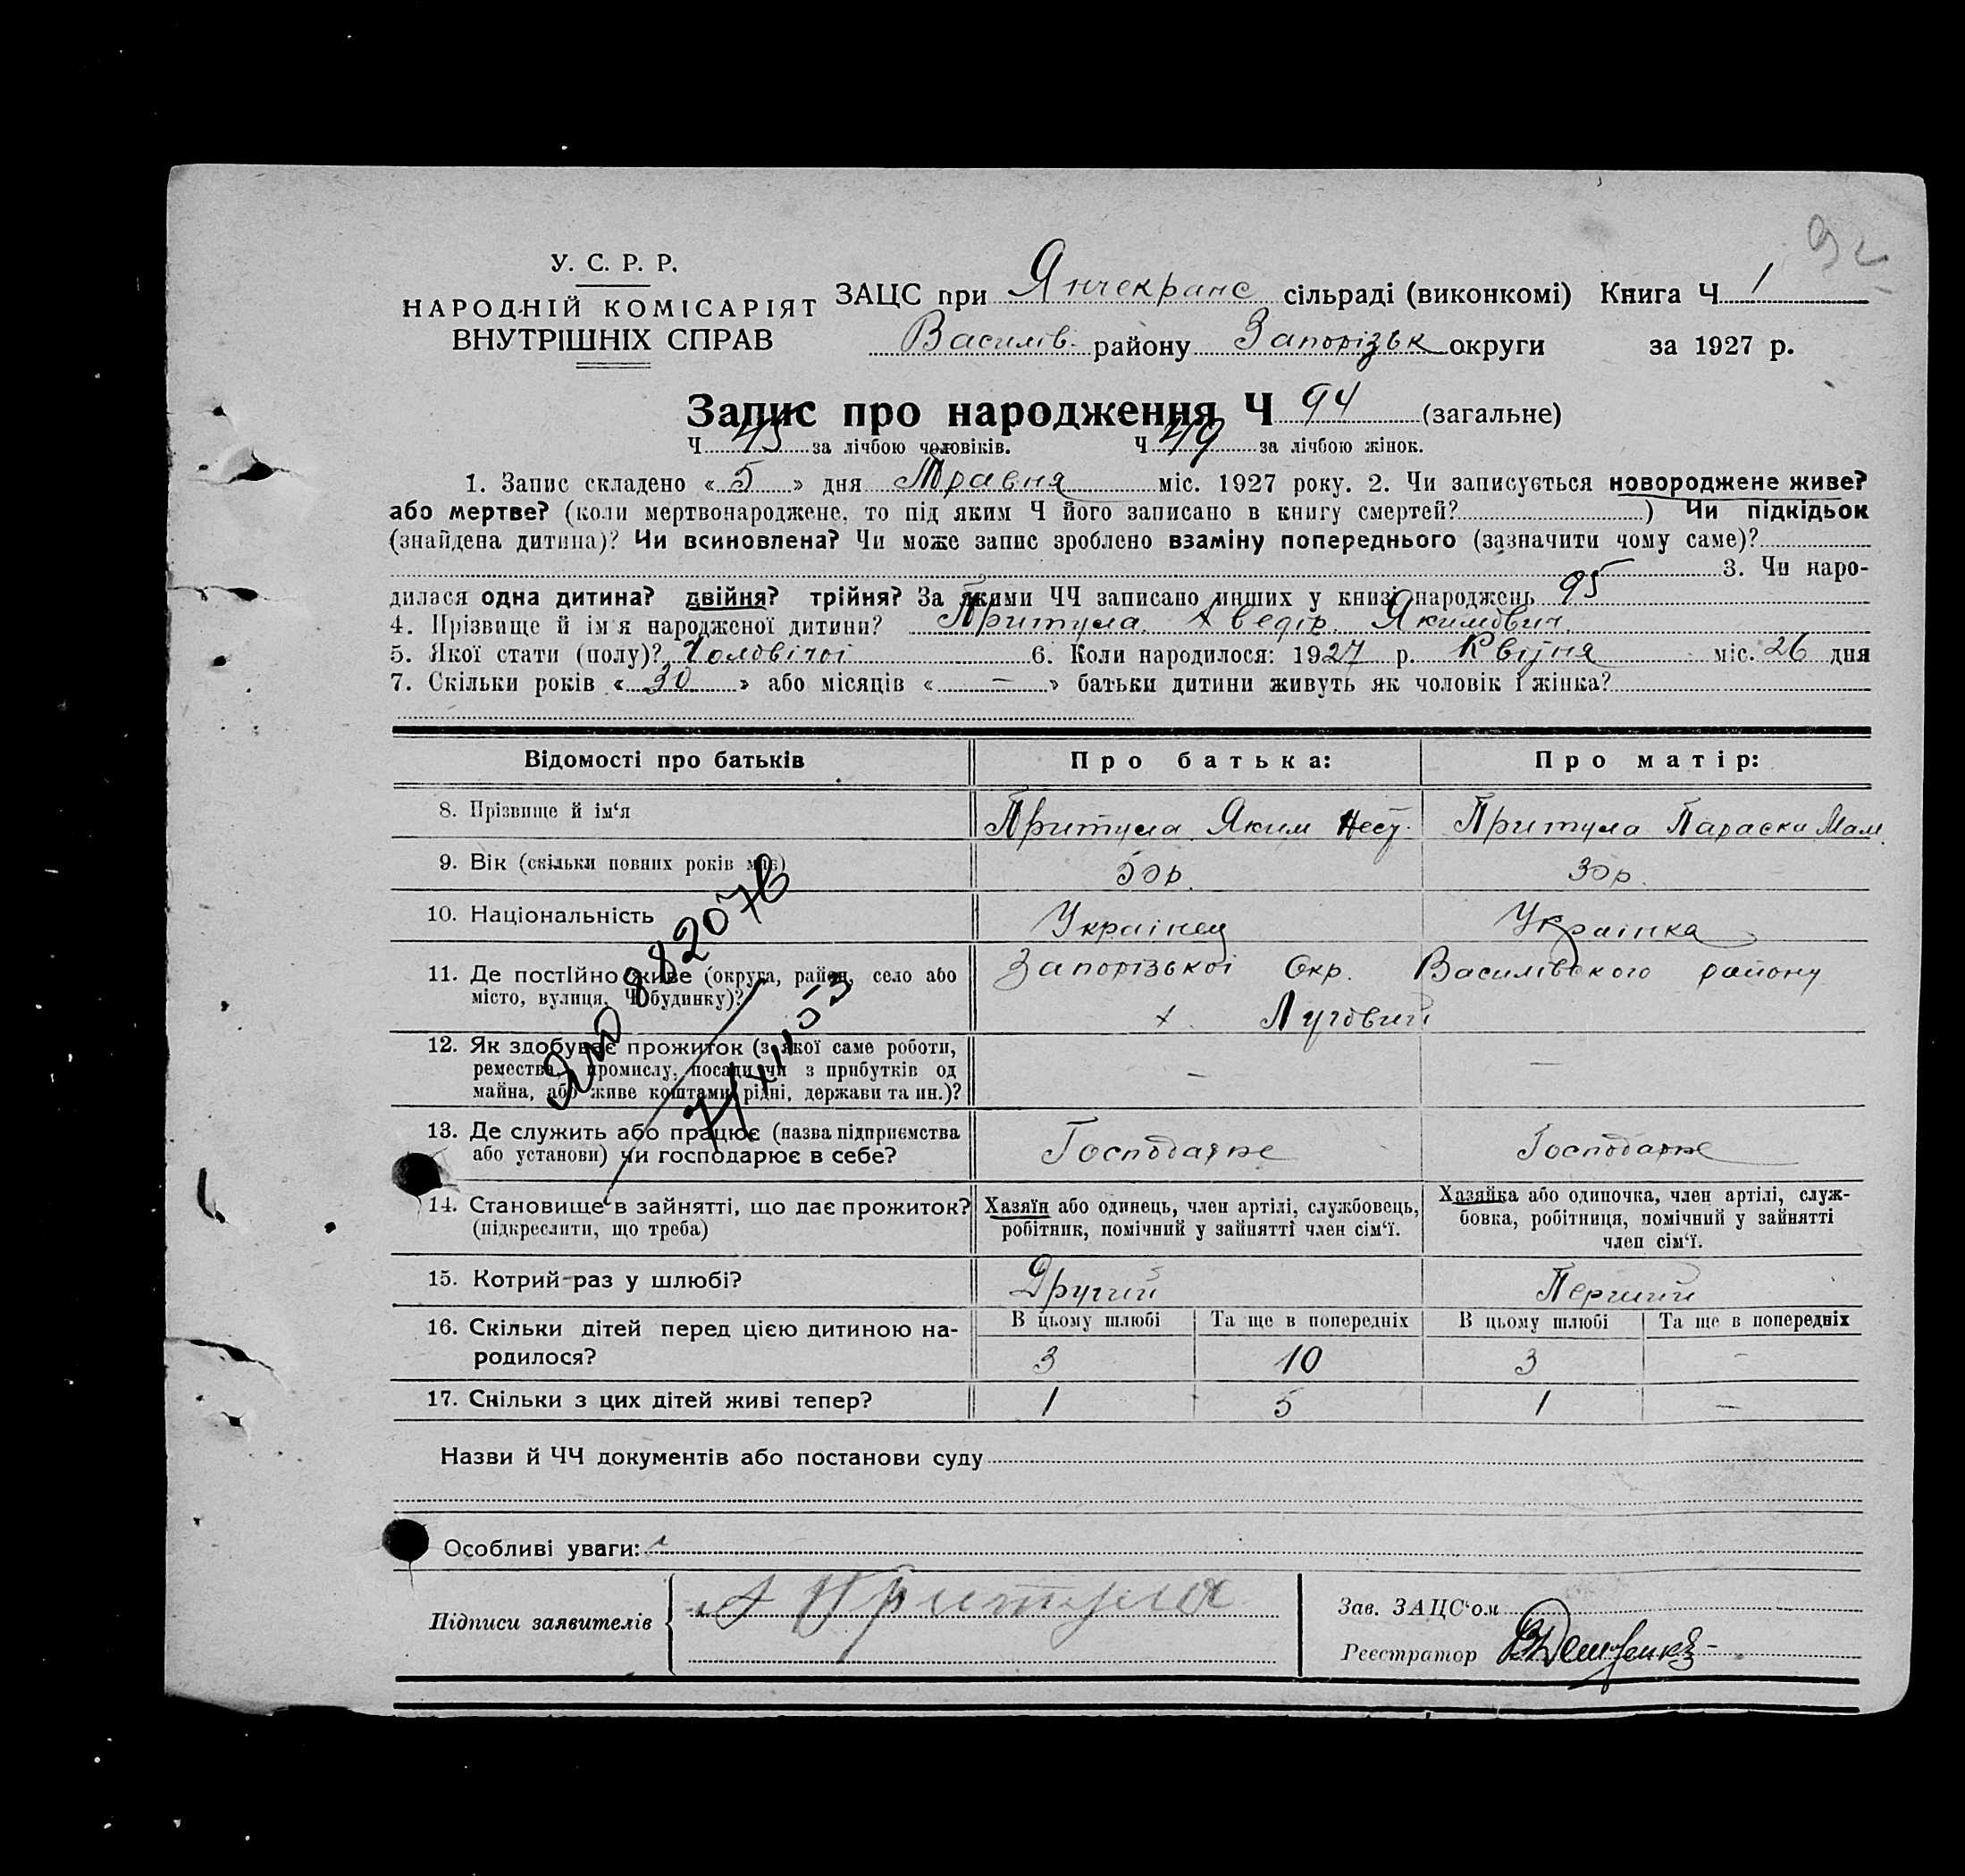 92
У. С. Р. Р.
НАРОДНІЙ КОМІСАРІЯТ
ВНУТРІШНІХ СПРАВ
ЗАЦС при Янчекранс сільраді (виконкомі) Книга Ч 1
Василів. району Запорізьк округи за 1927 р.
Запис про народження Ч 94 (загальне)
Ч 45 за лічбою чоловіків. Ч 49 за лічбою жінок.
1. Запис складено « 5 » дня Травня міс. 1927 року. 2. Чи записується новороджене живе?
або мертве? (коли мертвонароджене, то під яким Ч його записано в книгу смертей? ) Чи підкідьок
(знайдена дитина)? Чи всиновлена? Чи може запис зроблено взаміну попереднього (зазначити чому саме)?
3. Чи наро-
дилася одна дитина? двійня? трійня? За якими ЧЧ записано инших у книзі народжень 95
4. Прізвище й ім'я народженої дитини? Притула Хведір Якимович.
5. Якої стати (полу)? Чоловічої 6. Коли народилося: 1927 р. Квітня міс. 26 дня
7. Скільки років « 30 » або місяців « — » батьки дитини живуть як чоловік і жінка?
Відомості про батьків Про батька: Про матір:
8. Прізвище й ім'я Притула Яким Нест. Притула Параска Мам.
9. Вік (скільки повних років має) 50 р. 30 р.
10. Національність Українец Українка
11. Де постійно живе (округа, район, село або
місто, вулиця, Ч будинку)?
Запорізької Окр. Василівського району
х. Луговий
12. Як здобуває прожиток (з якої саме роботи,
ремества, промислу, посади чи з прибутків од
майна, або живе коштами рідні, держави та ин.)?
— —
13. Де служить або працює (назва підприємства
або установи) чи господарює в себе?
Господарює Господарює
14. Становище в зайнятті, що дає прожиток?
(підкреслити, що треба)
Хазяїн або одинець, член артілі, службовець,
робітник, помічний у зайнятті член сім'ї.
Хазяйка або одиночка, член артілі, служ-
бовка, робітниця, помічний у зайнятті
член сім'ї.
15. Котрий раз у шлюбі? Другий Перший
16. Скільки дітей перед цією дитиною на-
родилося?
В цьому шлюбі Та ще в попередніх В цьому шлюбі Та ще в попередніх
3 10 3 -
17. Скільки з цих дітей живі тепер? 1 5 1 —
882076
Назви й ЧЧ документів або постанови суду
Особливі уваги:
Підписи заявителів Притула
Зав. ЗАЦС'ом
Реєстратор